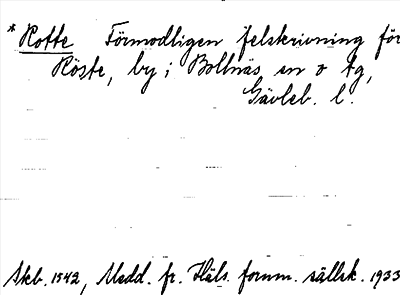 * Rotte Förmodligen felskrivning för
Röste, by i Bollnäs sn o tg,
Gävleb. l.
Skb. 1542, Medd. fr. Häls. fornm. sällsk. 1933